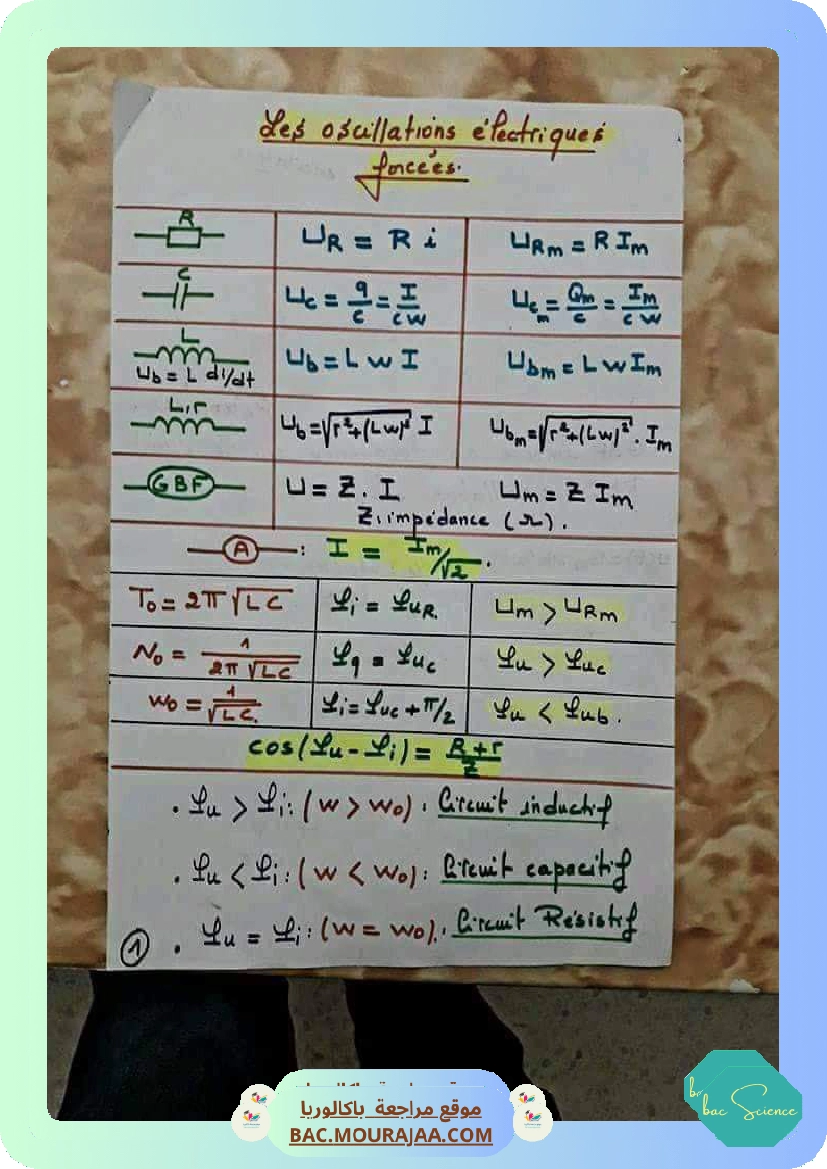 Les oscillations électriques
forcées.
R
U_R = R i
U_Rm = R I_m
C
U_c = q/c = I/cw
U_cm = Q_m/c = I_m/cw
L
U_b = L di/dt
U_b = L w I
U_bm = L w I_m
L, r
U_b = √(r²+(Lw)²) I
U_bm = √(r²+(Lw)²) . I_m
GBF
U = Z . I
U_m = Z I_m
Z : impédance (Ω).
A : I = I_m/√2 .
T₀ = 2π √LC
φ_i = φ_uR
U_m > U_Rm
N₀ = 1/(2π √LC)
φ_q = φ_uc
φ_u > φ_uc
w₀ = 1/√LC.
φ_i = φ_uc + π/2
φ_u < φ_ub .
cos(φ_u - φ_i) = (R + r)/Z
. φ_u > φ_i : (w > w₀) . Circuit inductif
. φ_u < φ_i : (w < w₀) : Circuit capacitif
. φ_u = φ_i : (w = w₀). Circuit Résistif
1
موقع مراجعة باكالوريا
BAC.MOURAJAA.COM
bac Science